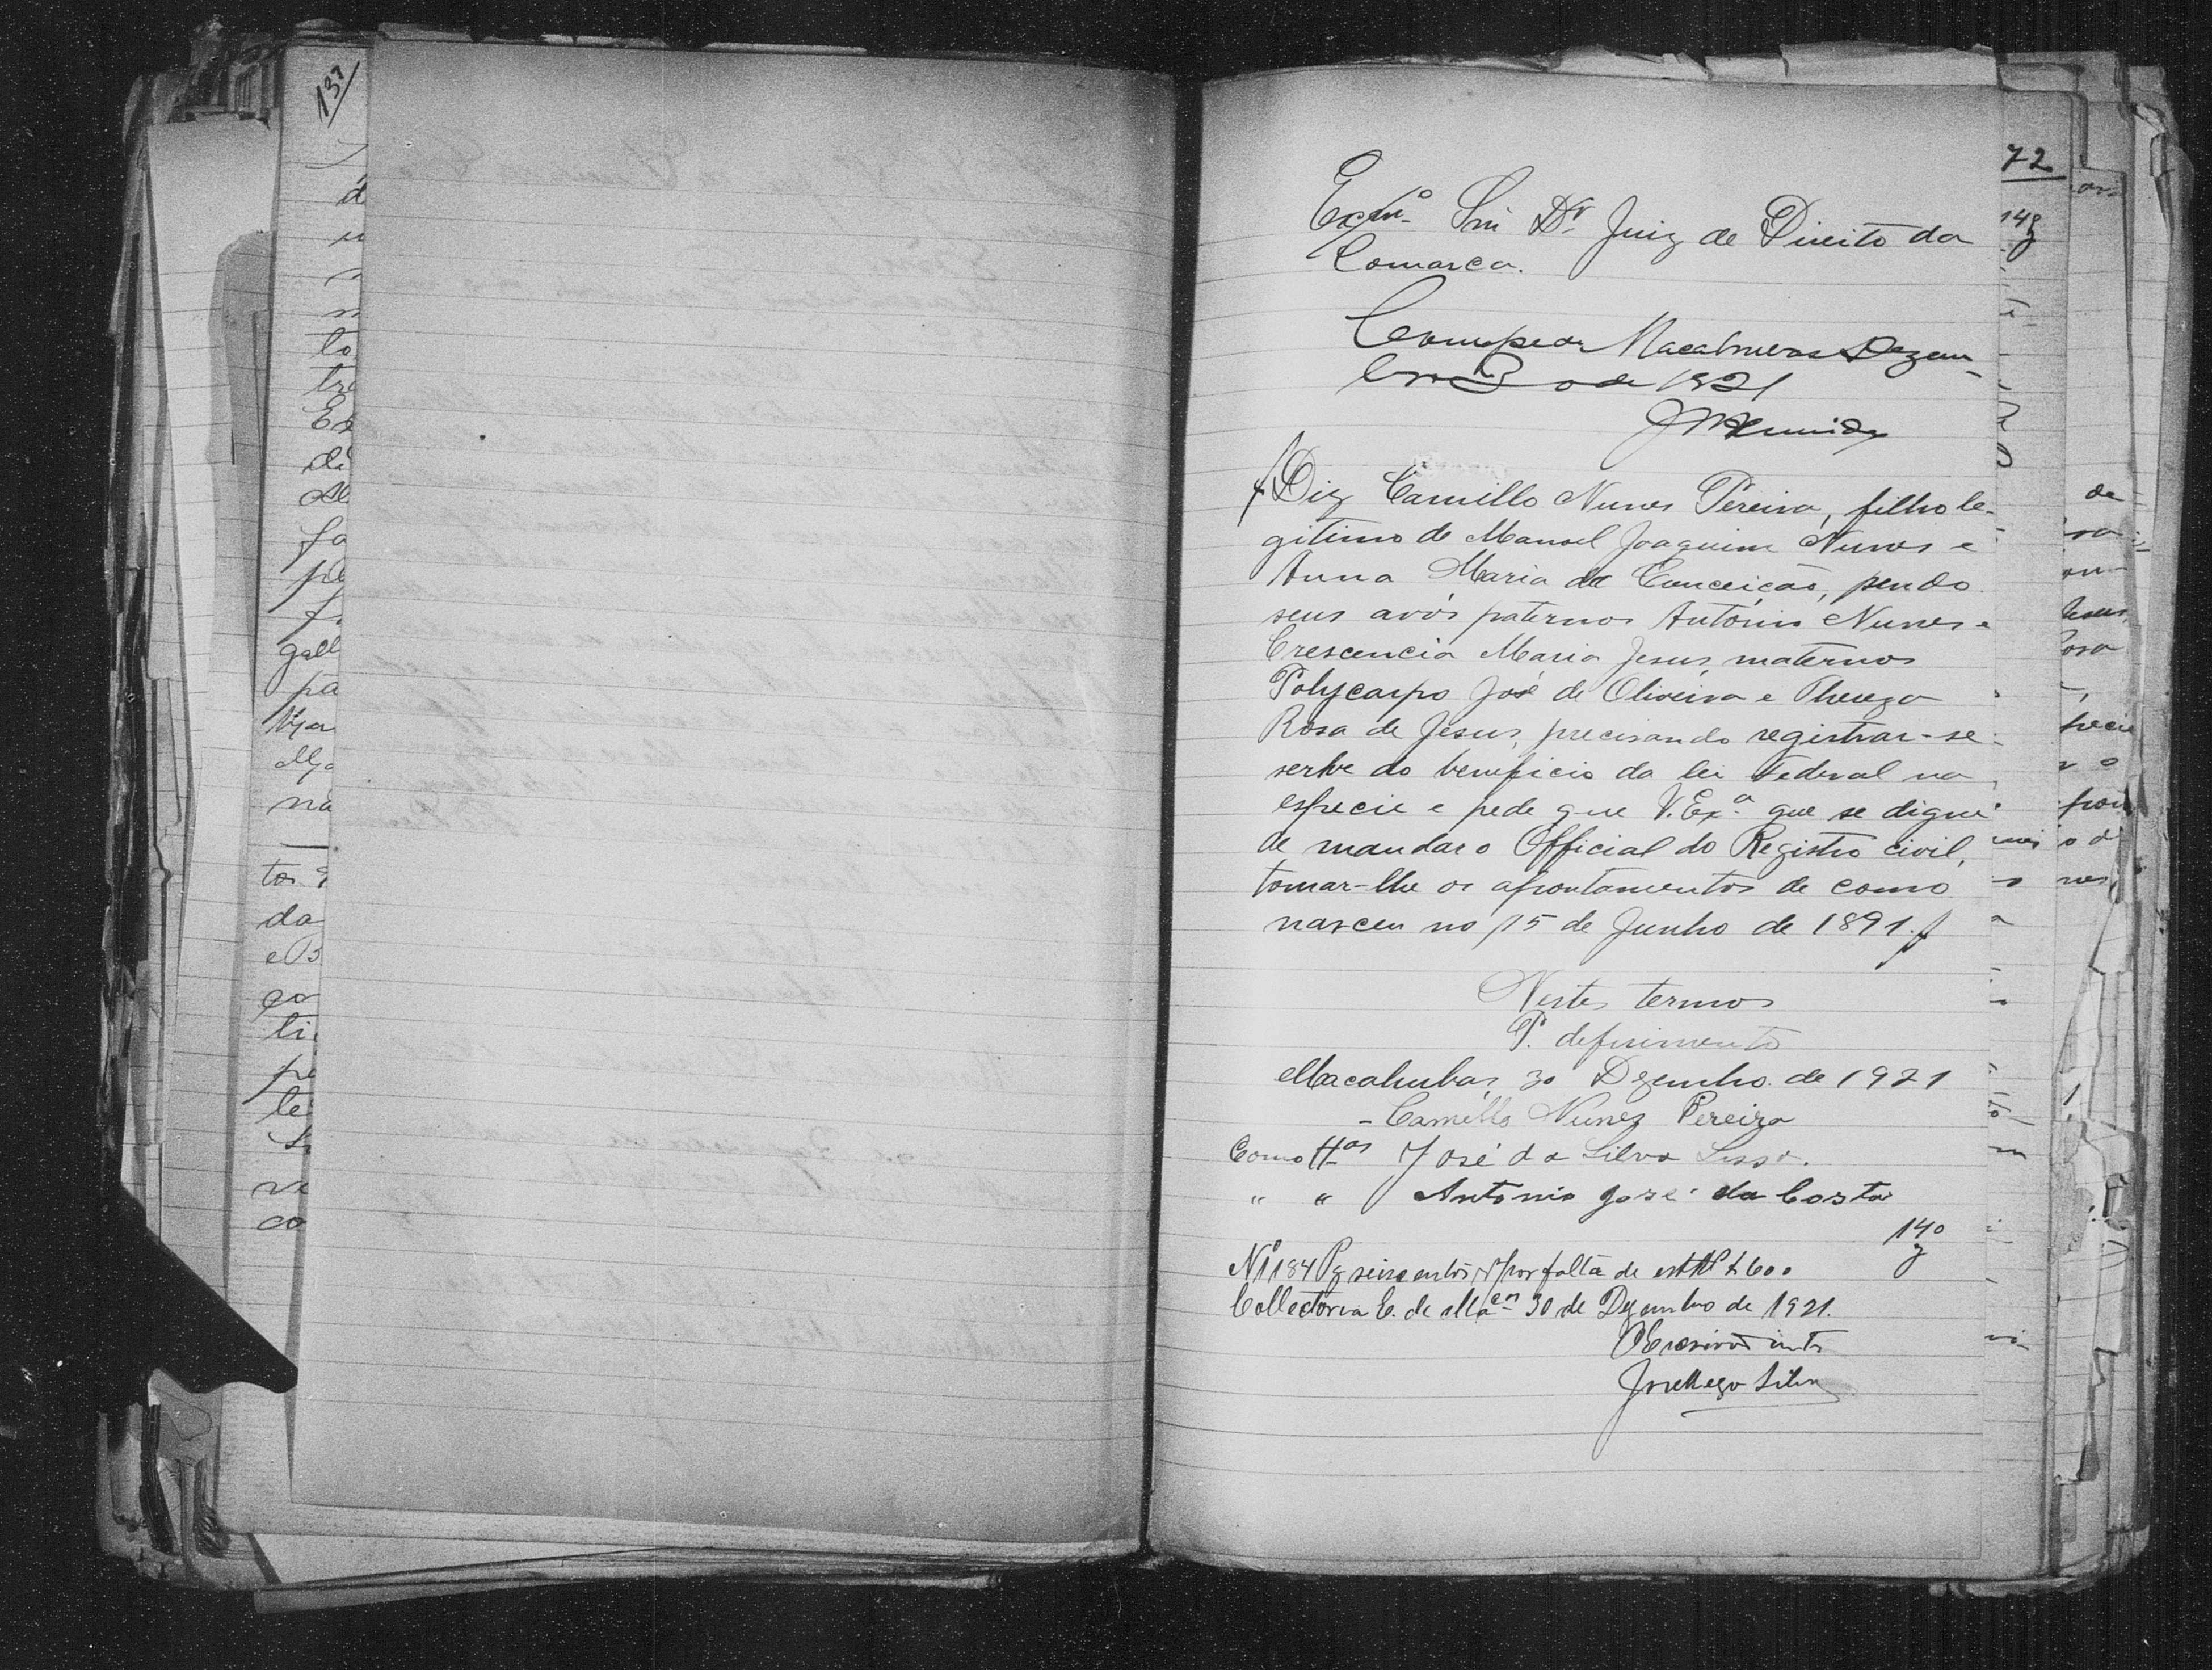 133
d
to
tre
di
fa
pe
gall
pa
na
da
co
ti
pe
le
ve
co
72
Exmº Snr Dr Juiz de Direito da
Comarca.
Macahubas Dezem
bro de 1921
Diz Camillo Nunes Pereira, filho le-
gitimo de Manoel Joaquim Nunes e
Anna Maria da Conceição, sendo
seus avós paternos António Nunes e
Crescencia Maria Jesus, maternos
Polycarpo José de Oliveira e Thereza
Rosa de Jesus, precisando registrar-se
do beneficio da lei Federal na
especie e pede que V. Exª que se digne
de mandar o Official do Registro civil,
tomar-lhe os apontamentos de como
nasceu no 15 de Junho de 1891.
Nestes termos
P. deferimento
Macahubas, 30 Dezembro de 1921
- Camillo Nunes Pereira
Como ttas José da Silva
" " Antonio José da Costa
140
Nº 184 Pg por falta de
Collectoria E. de 30 de Dezembro de 1921.
Silva
de
Rosa